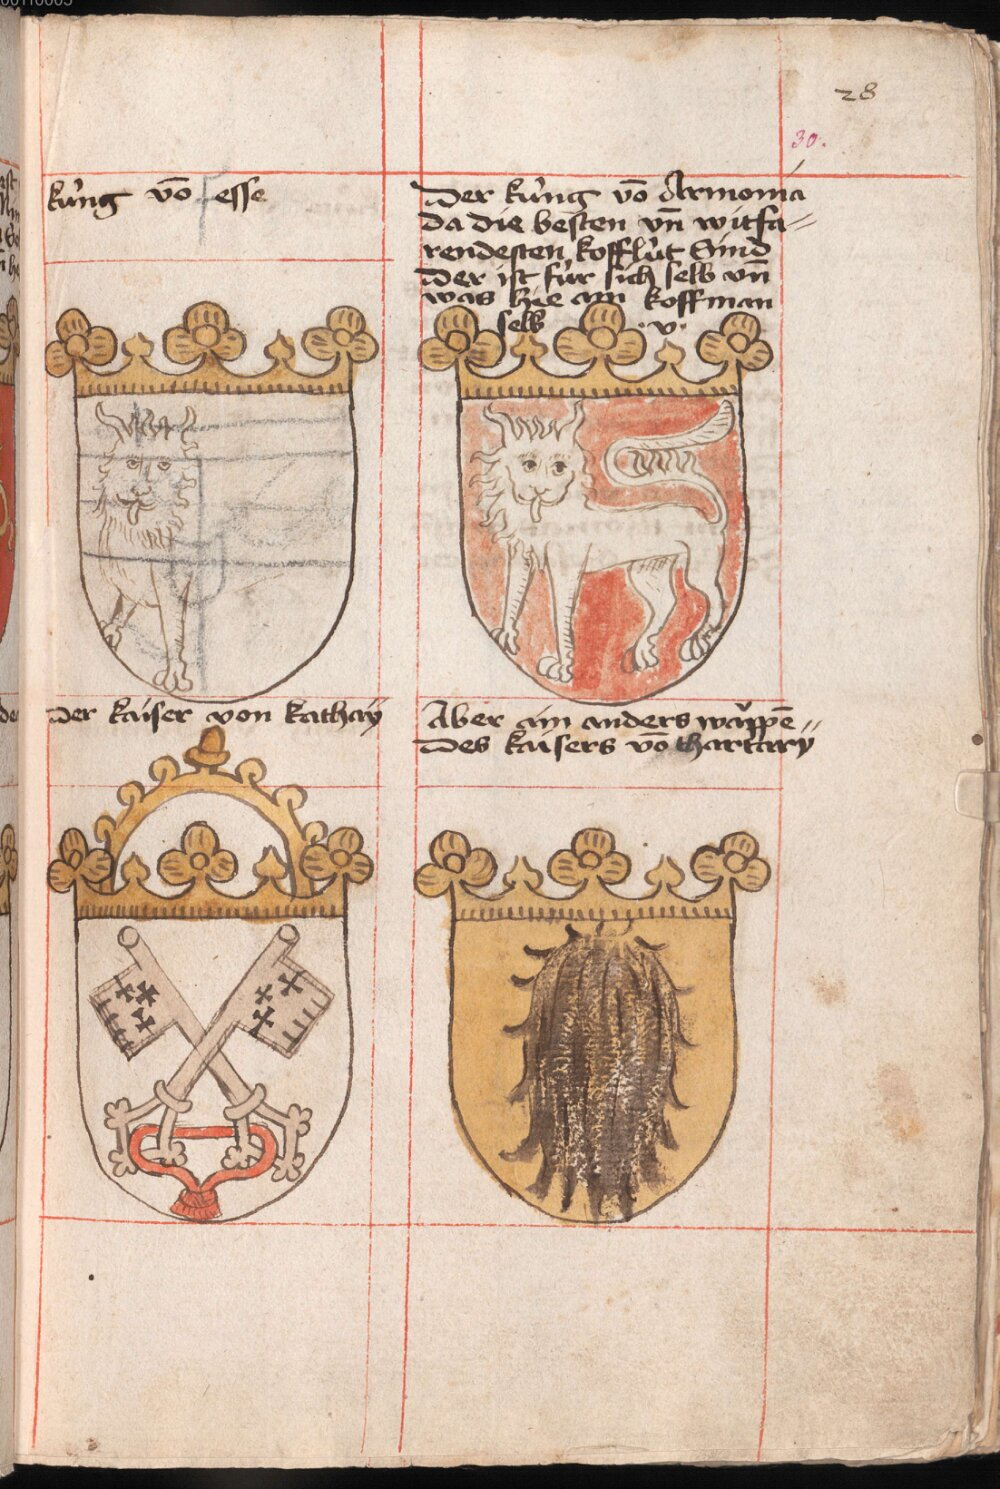 28
30.
kúng võ fesse
Der kúng võ Armonia
da die besten vñ witfa=
rendesten kofflút Sind
Der ist fúr sich selb vñ
was hie am koffman
selb ·v·
Der kaiser von kathay
Aber ain anders wappē=
Des kaisers võ thartary